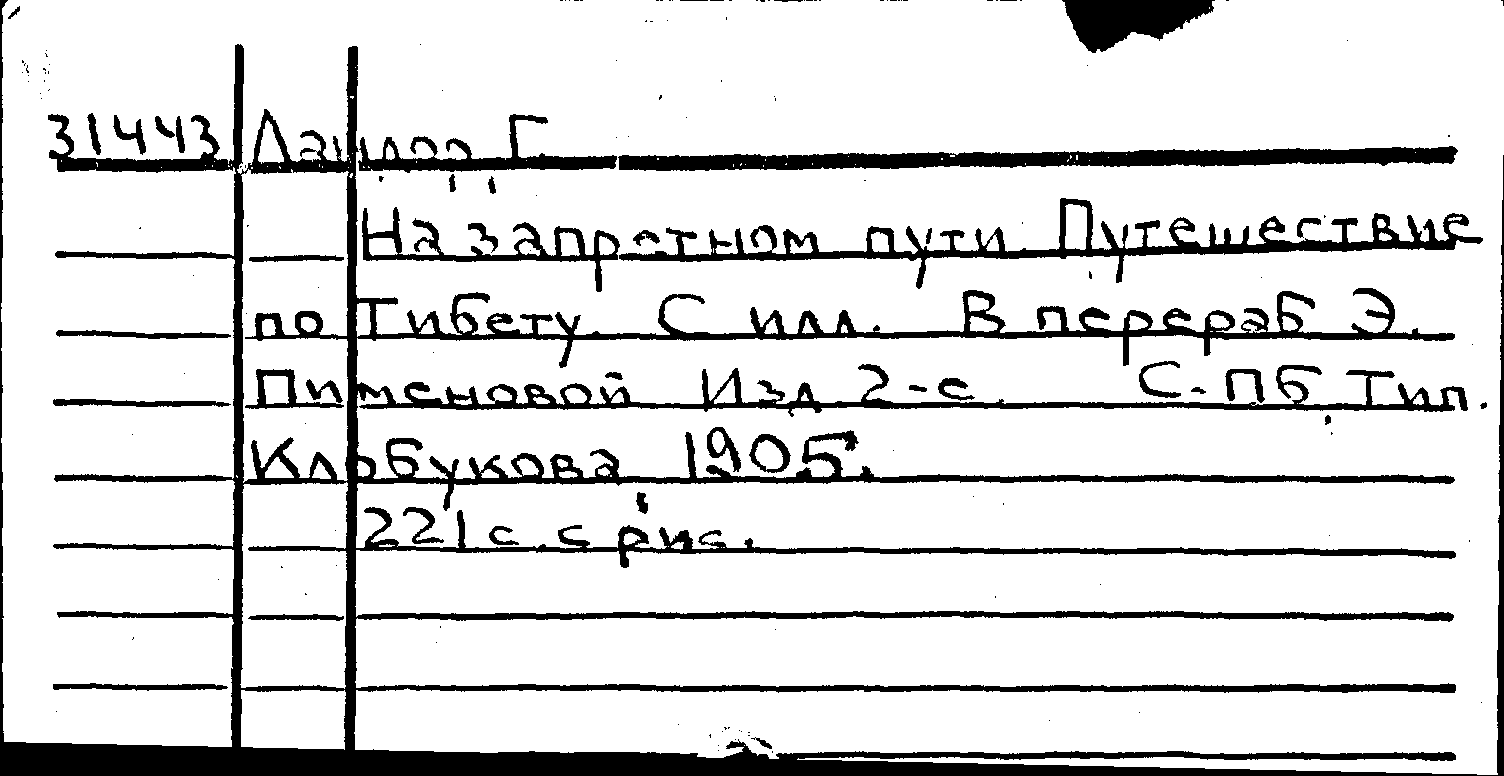 31443 Ландор Г.
На запретном пути. Путешествие
по Тибету. С илл. В перераб Э.
Пименовой Изд 2-е. С.-ПБ, Тип.
Клобукова 1905.
221 с. с рис.